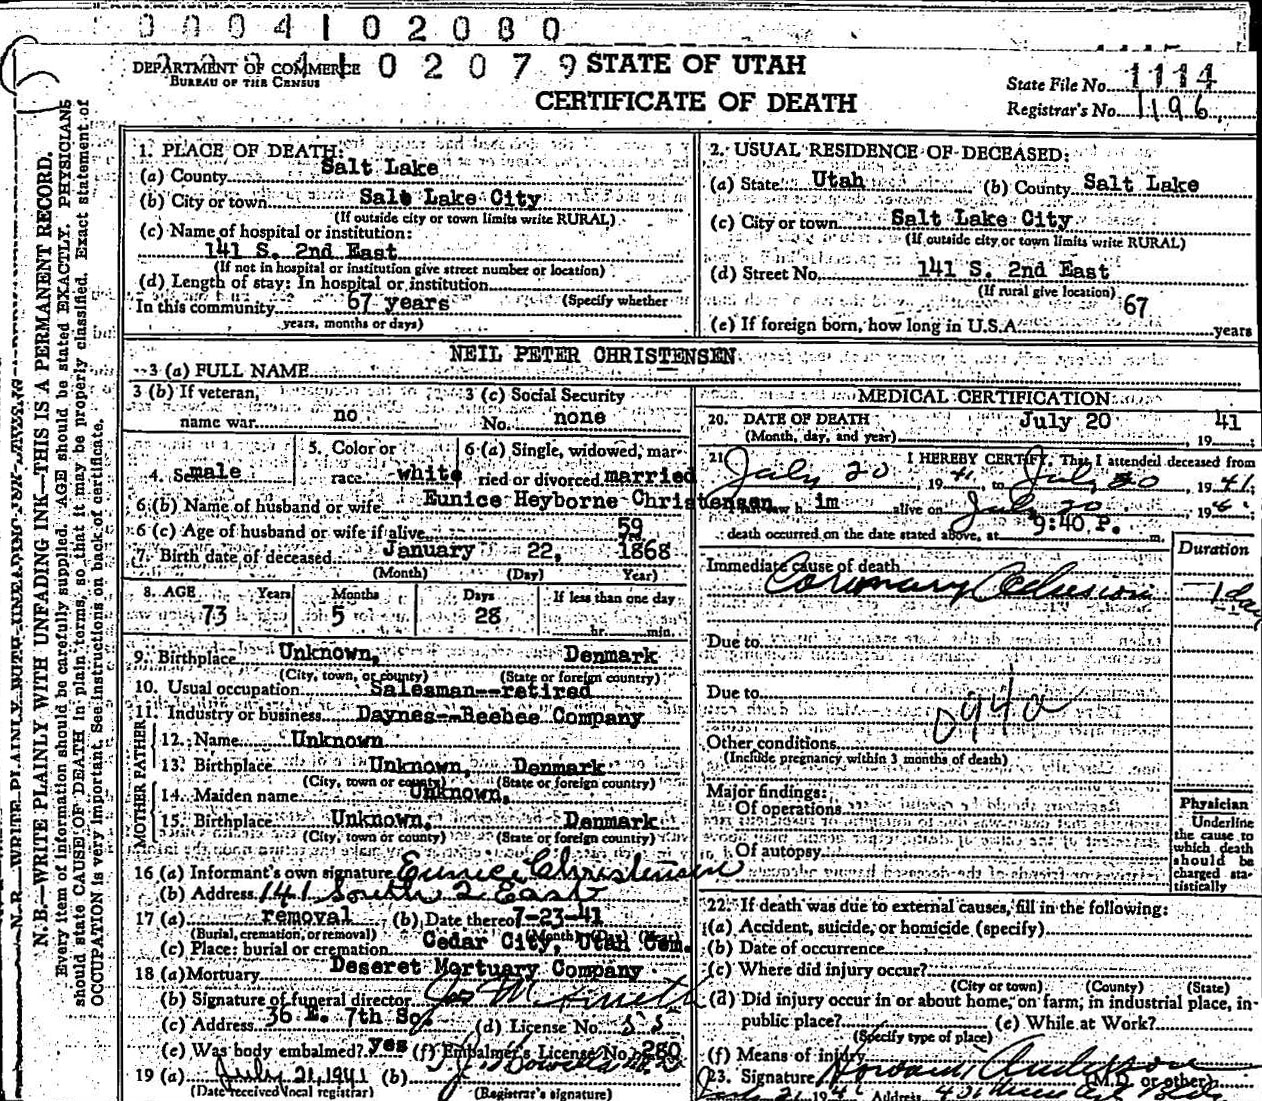 0 0 0 4 1 0 2 0 8 0
DEPARTMENT OF COMMERCE
BUREAU OF THE CENSUS
0 2 0 7 9
STATE OF UTAH
CERTIFICATE OF DEATH
State File No. 1114
Registrar's No. 1196
N. B.—WRITE PLAINLY WITH UNFADING INK—THIS IS A PERMANENT RECORD.
Every item of information should be carefully supplied. AGE should be stated EXACTLY. PHYSICIANS
should state CAUSE OF DEATH in plain terms, so that it may be properly classified. Exact statement of
OCCUPATION is very important. See instructions on back of certificate.
1. PLACE OF DEATH:
(a) County Salt Lake
(b) City or town Salt Lake City
(If outside city or town limits write RURAL)
(c) Name of hospital or institution:
141 S. 2nd East
(If not in hospital or institution give street number or location)
(d) Length of stay: In hospital or institution
In this community 67 years (Specify whether
years, months or days)
2. USUAL RESIDENCE OF DECEASED:
(a) State Utah (b) County Salt Lake
(c) City or town Salt Lake City
(If outside city or town limits write RURAL)
(d) Street No. 141 S. 2nd East
(If rural give location)
(e) If foreign born, how long in U.S.A. 67 years
3 (a) FULL NAME NEIL PETER CHRISTENSEN
3 (b) If veteran, name war no
3 (c) Social Security No. none
4. Sex male
5. Color or race white
6 (a) Single, widowed, married or divorced married
6 (b) Name of husband or wife Eunice Heyborne Christensen
6 (c) Age of husband or wife if alive 59
7. Birth date of deceased January 22, 1868
(Month) (Day) Year)
8. AGE Years Months Days If less than one day
73 5 28 hr. min.
9. Birthplace Unknown, Denmark
(City, town, or county) (State or foreign country)
10. Usual occupation Salesman--retired
11. Industry or business Daynes--Beebee Company
FATHER
12. Name Unknown
13. Birthplace Unknown, Denmark
(City, town or county) (State or foreign country)
MOTHER
14. Maiden name Unknown,
15. Birthplace Unknown, Denmark
(City, town or county) (State or foreign country)
16 (a) Informant's own signature Eunice Christensen
(b) Address 141 South 2 East
17 (a) removal (b) Date thereof 7-23-41
(Burial, cremation, or removal) (Month) (Day)
(c) Place: burial or cremation Cedar City, Utah Cem.
18 (a) Mortuary Deseret Mortuary Company
(b) Signature of funeral director
(c) Address 36 E. 7th So. (d) License No. 55
(e) Was body embalmed? yes (f) Embalmer's License No. 280
19 (a) July 21, 1941 (b)
(Date received local registrar) (Registrar's signature)
MEDICAL CERTIFICATION
20. DATE OF DEATH July 20 , 19 41
(Month, day, and year)
21. I HEREBY CERTIFY, That I attended deceased from
July 20 , 19 41, to July 20 , 19 41;
h im alive on July 20 , 19
death occurred on the date stated above, at 9:40 P. m.
Duration
Immediate cause of death
Coronary Occlusion 1 day
Due to
Due to
094a
Other conditions
(Include pregnancy within 3 months of death)
Major findings:
Of operations
Of autopsy
Physician
Underline
the cause to
which death
should be
charged sta-
tistically
22. If death was due to external causes, fill in the following:
(a) Accident, suicide, or homicide (specify)
(b) Date of occurrence
(c) Where did injury occur?
(City or town) (County) (State)
(d) Did injury occur in or about home, on farm, in industrial place, in
public place? (e) While at Work?
(Specify type of place)
(f) Means of injury
23. Signature Howard Anderson
(M.D. or other)
Address